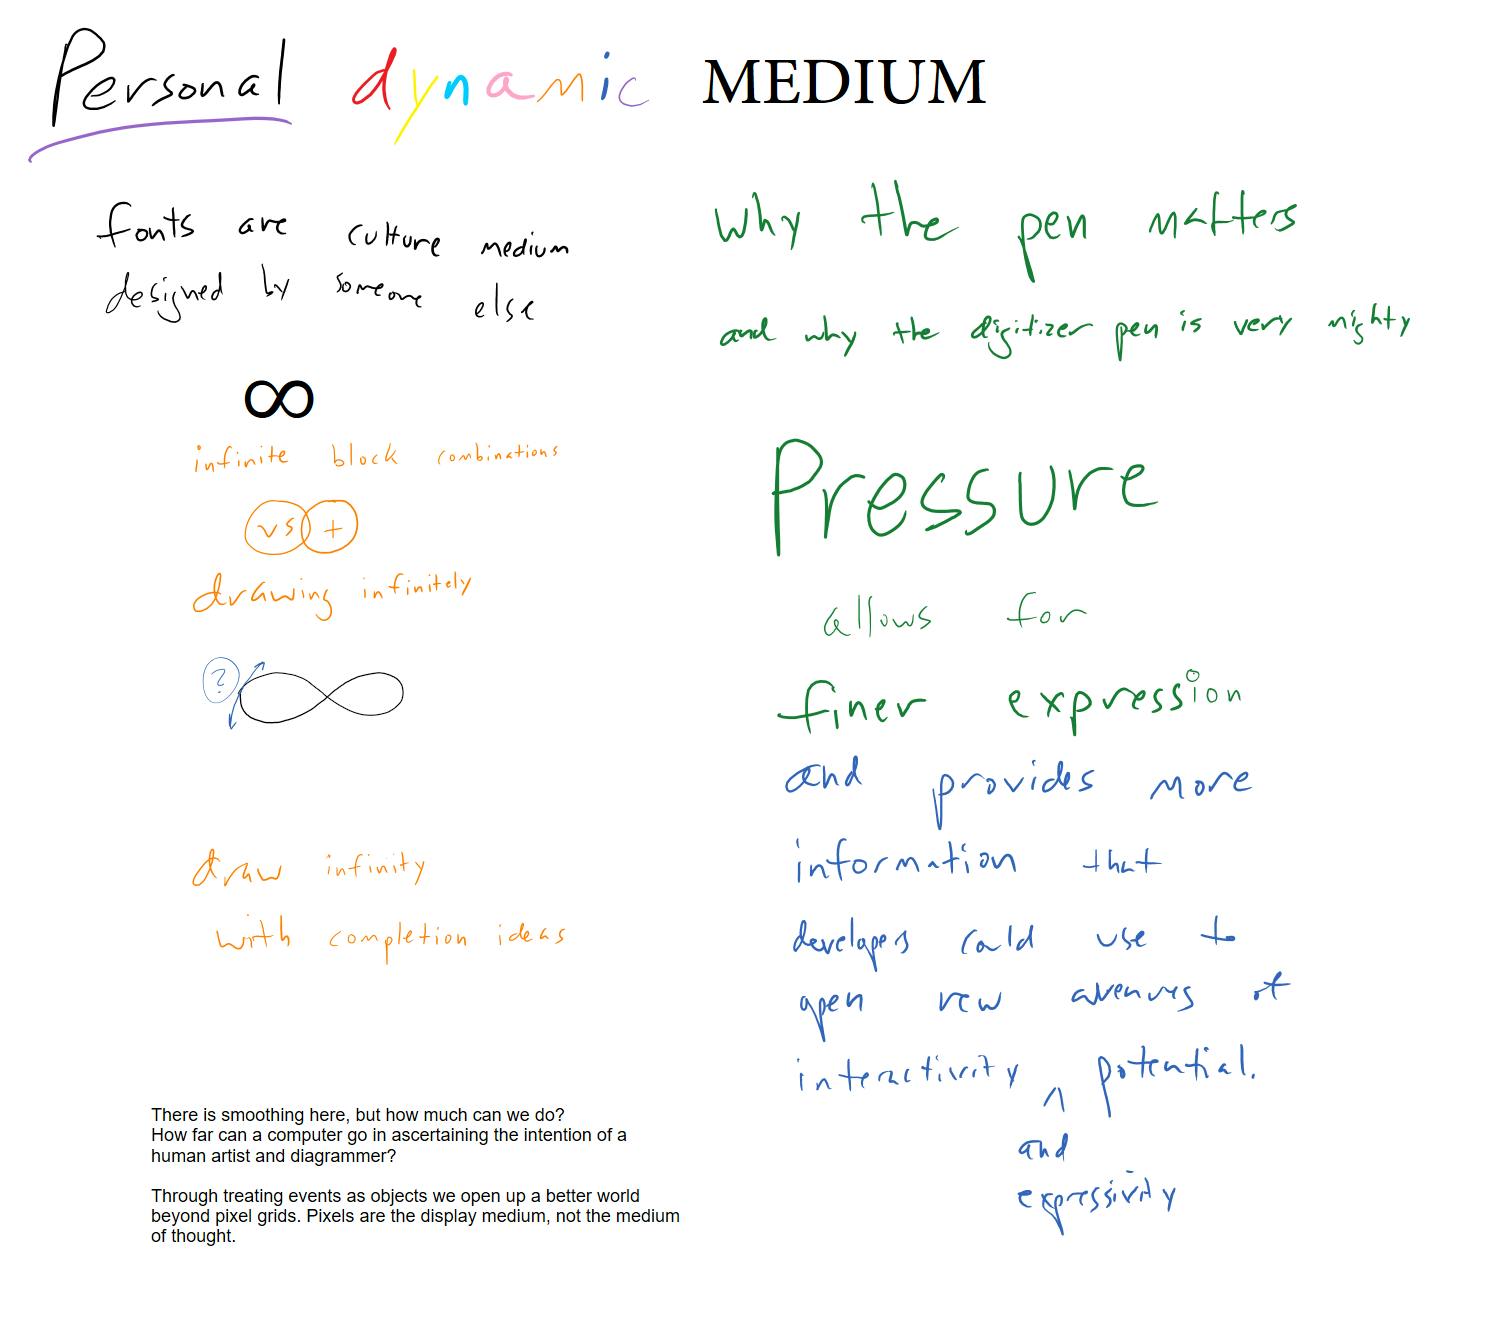 Personal dynamic MEDIUM
fonts are culture medium
designed by someone else
∞
infinite block combinations
vs +
drawing infinitely
?
draw infinity
with completion ideas
There is smoothing here, but how much can we do?
How far can a computer go in ascertaining the intention of a
human artist and diagrammer?
Through treating events as objects we open up a better world
beyond pixel grids. Pixels are the display medium, not the medium
of thought.
why the pen matters
and why the digitizer pen is very mighty
Pressure
allows for
finer expression
and provides more
information that
developers could use to
open new avenues of
interactivity ^ potential.
and
expressivity